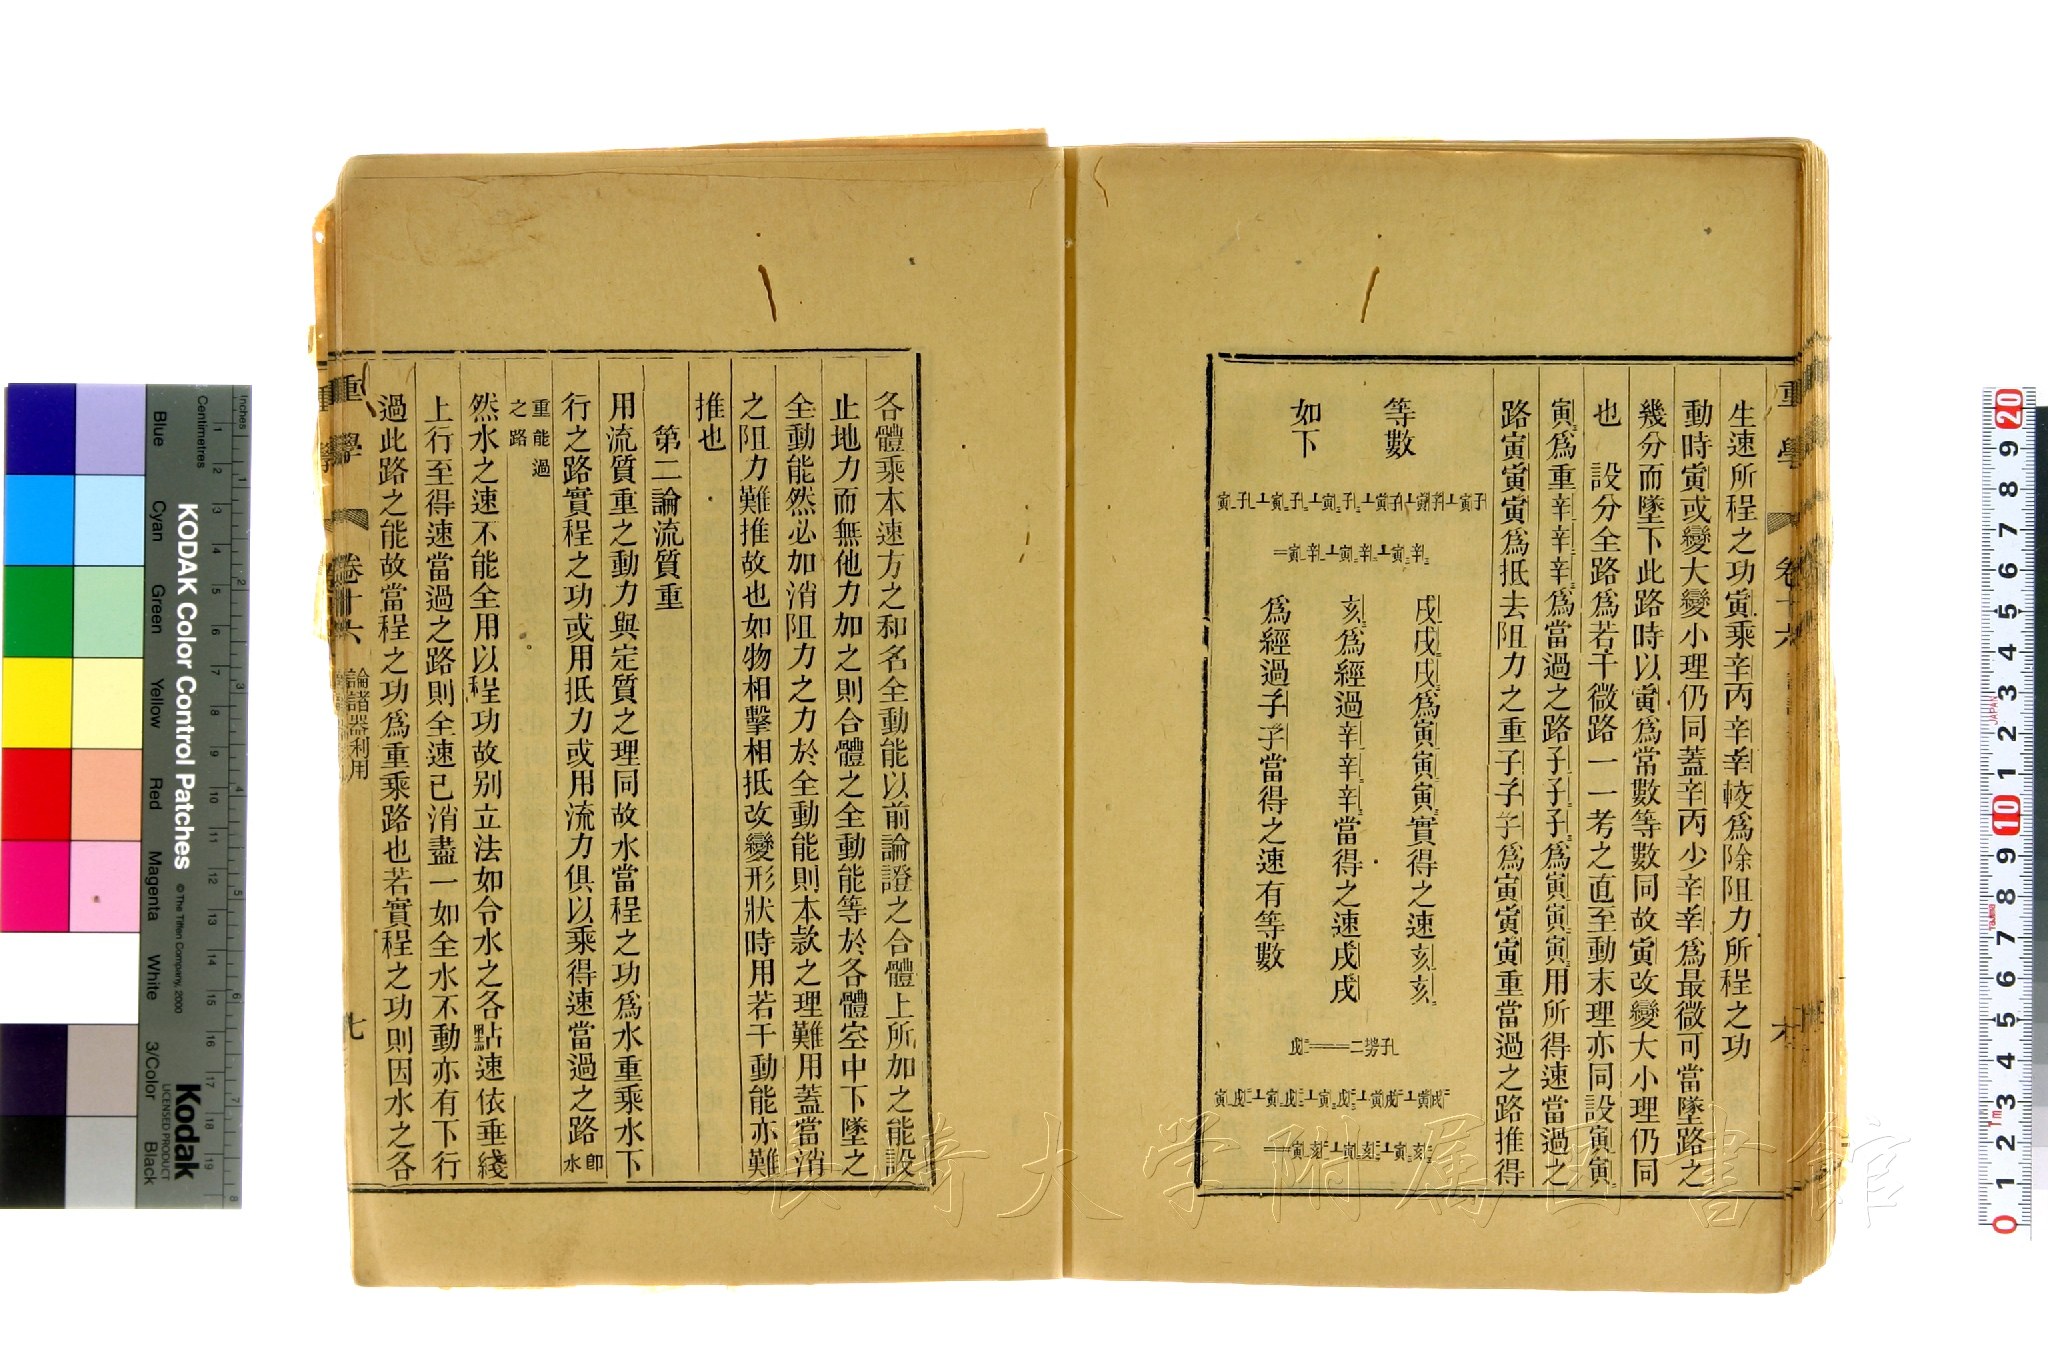 生速所程之功寅乘辛丙辛較爲除阻力所程之功
動時寅或變大變小理仍同蓋辛丙少辛爲最微可當墜路之
幾分而墜下此路時以寅爲常數等數同故寅改變大小理仍同
也 設分全路爲若干微路一一考之直至動末理亦同設寅寅
寅爲重辛辛辛爲當過之路子子子爲寅寅寅用所得速當過之
路寅寅寅爲抵去阻力之重子子子爲寅寅寅重當過之路推得
戌戌戌爲寅寅寅實得之速亥亥
等數
亥爲經過辛辛辛當得之速戌戌
如下
爲經過子子當得之速有等數
各體乘本速方之和名全動能以前論證之合體上所加之能設
止地力而無他力加之則合體之全動能等於各體空中下墜之
全動能然必加消阻力之力於全動能則本款之理難用蓋當消
之阻力難推故也如物相擊相抵改變形狀時用若干動能亦難
推也
第二論流質重
用流質重之動力與定質之理同故水當程之功爲水重乘水下
行之路實程之功或用抵力或用流力俱以乘得速當過之路卽水
重能過之路
然水之速不能全用以程功故别立法如令水之各點速依垂綫
上行至得速當過之路則全速已消盡一如全水不動亦有下行
過此路之能故當程之功爲重乘路也若實程之功則因水之各
重學 卷十六 論諸器利用 七
KODAK Color Control Patches
© The Tiffen Company, 2000
Kodak
LICENSED PRODUCT
Blue Cyan Green Yellow Red Magenta White 3/Color Black
Inches
Centimetres
長崎大学附属図書館